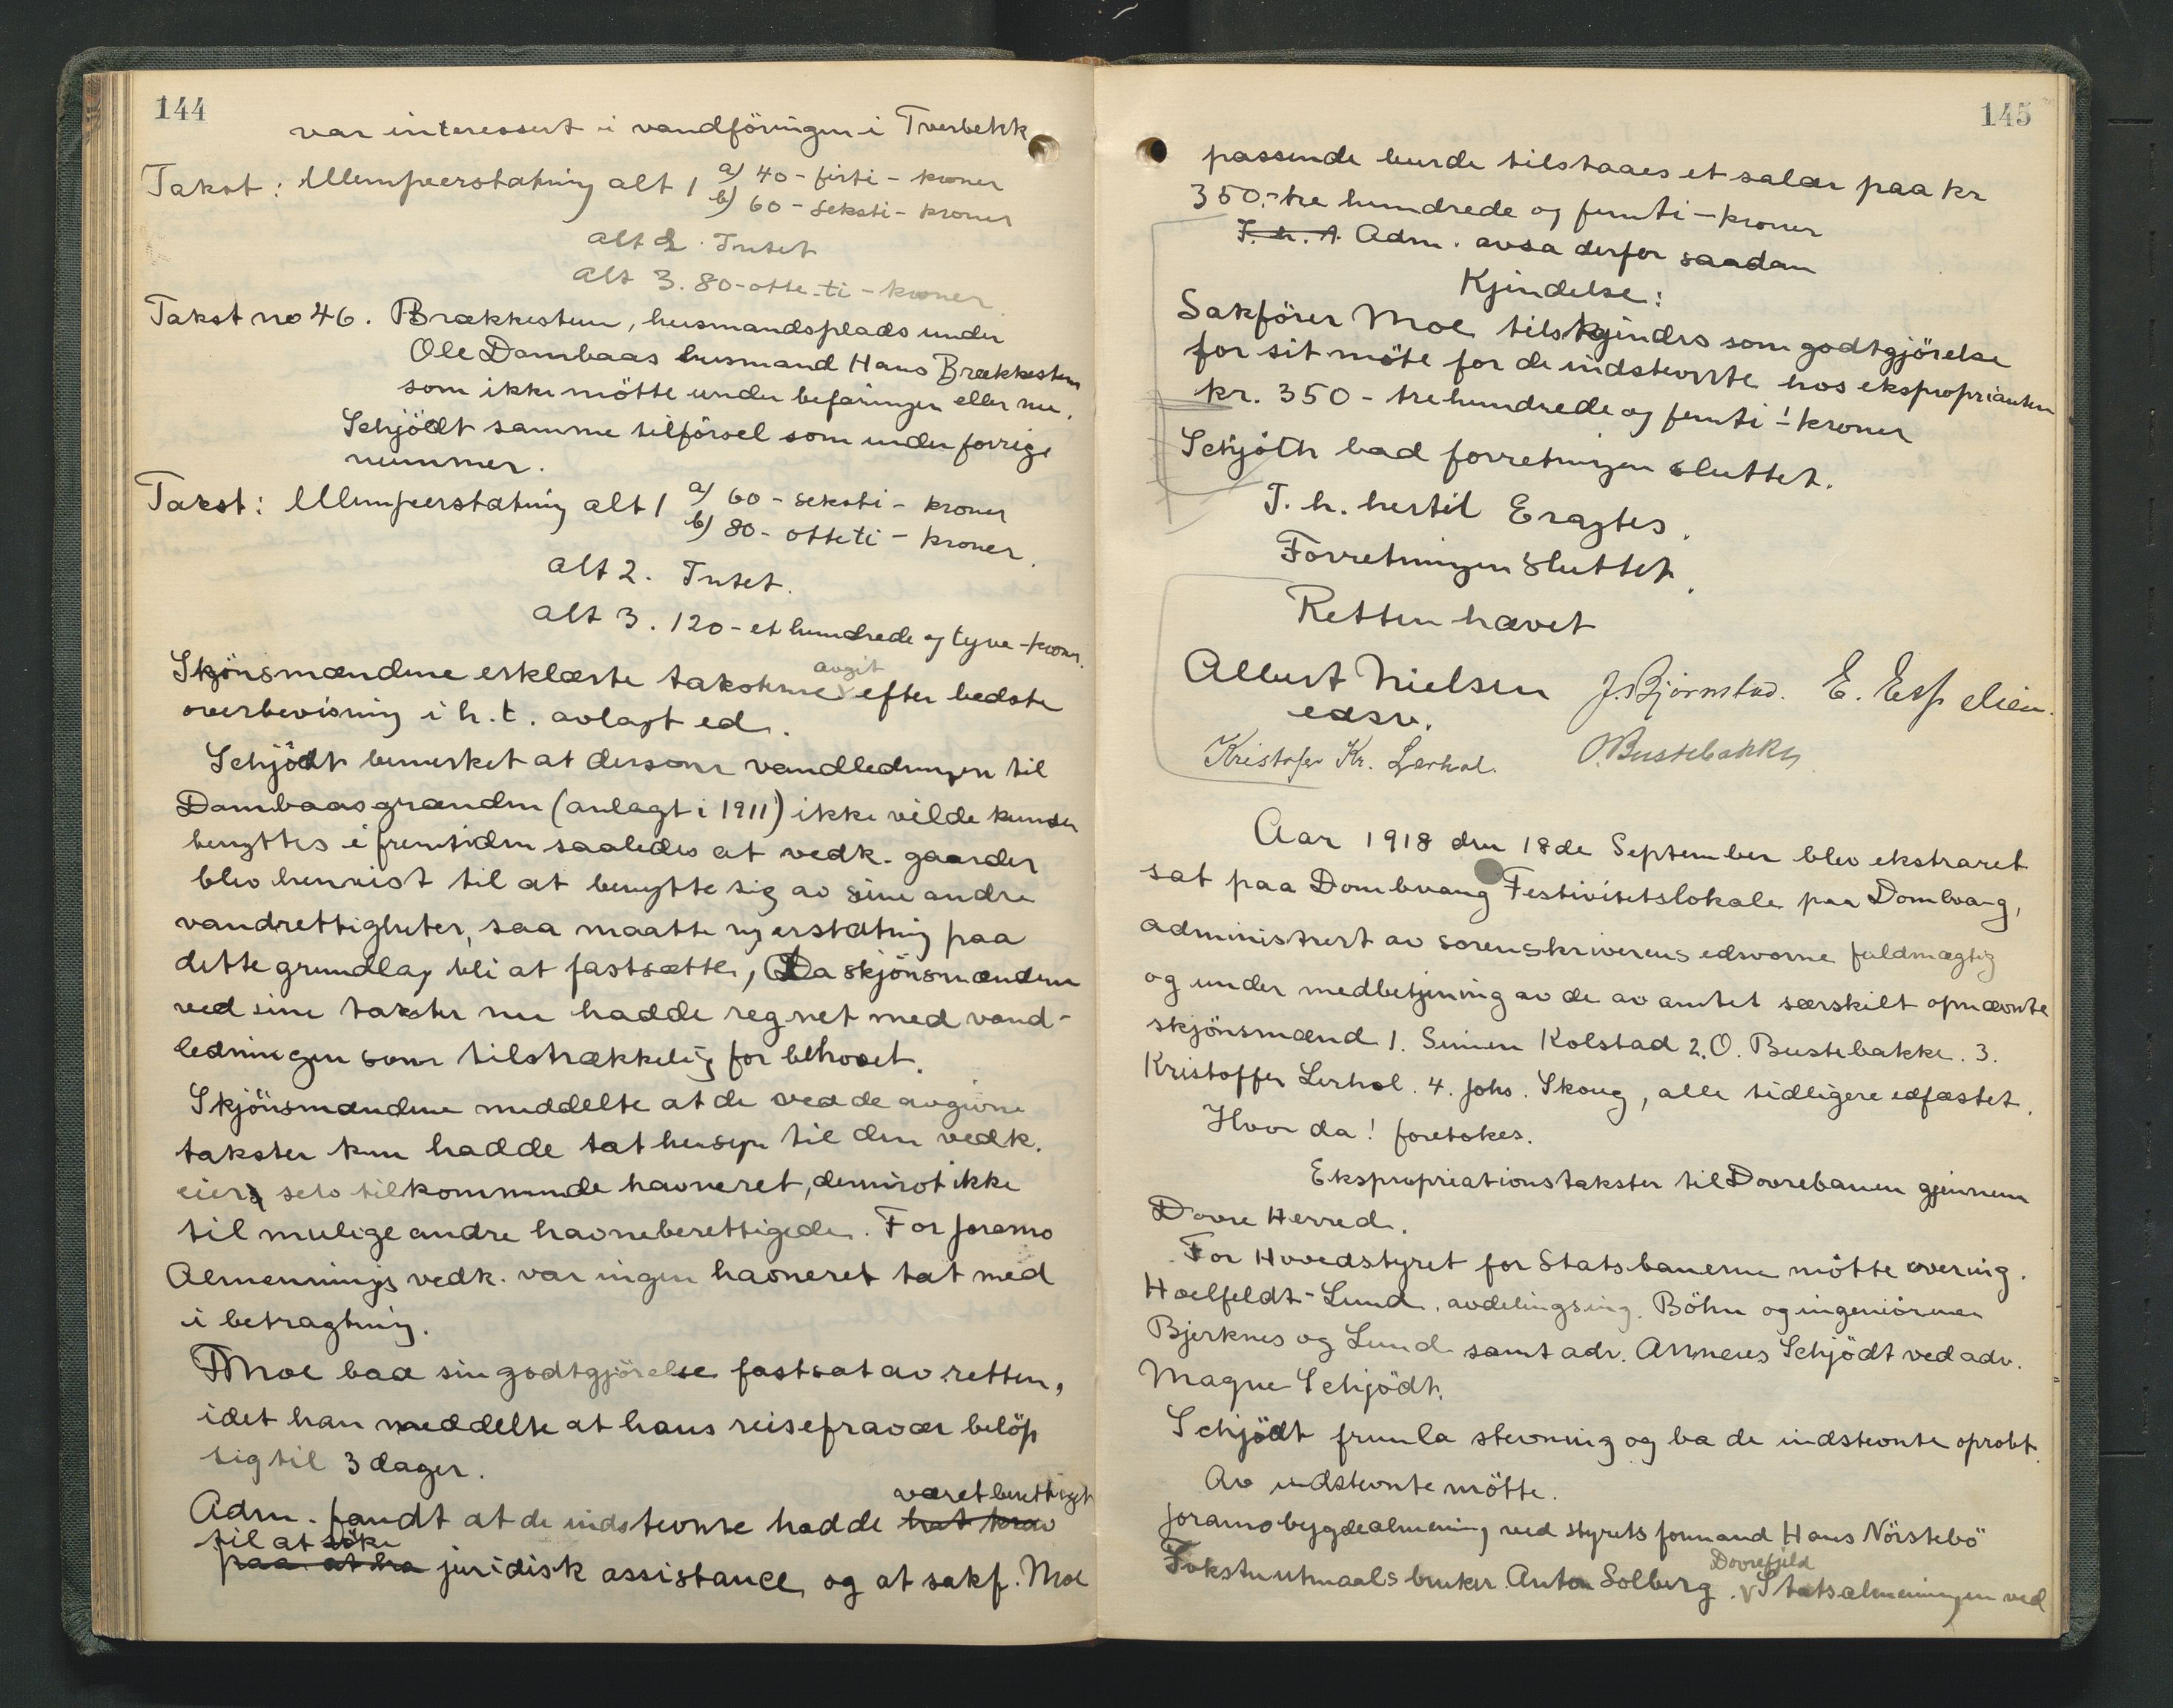 144
var interessert i vandföringen i Tverbekk
Takst: Ulempeerstatning alt 1 a) 40 - firti - kroner
b) 60 - seksti - kroner
alt 2. Intet
alt 3. 80 - otte-ti - kroner
Takst no 46. Brækkestuen, husmandsplads under
Ole Dombaas husmand Hans Brækkestuen
som ikke mötte under befaringen eller nu.
Schjödt samme tilförsel som under forrige
nummer.
Takst: Ulempeerstatning alt 1 a) 60 - seksti - kroner
b) 80 - otteti - kroner.
alt 2. Intet.
alt 3. 120 - et hundrede og tyve - kroner.
Skjönsmændene erklærte taksterne avgit efter bedste
overbevisning i h.t. avlagt ed.
Schjödt bemerket at dersom vandledningen til
Dombaasgrænden (anlagt i 1911) ikke vilde kunde
benyttes i fremtiden saaledes at vedk. gaarder
blev henvist til at benytte sig av sine andre
vandrettigheter, saa maatte ny erstatning paa
dette grundlag bli at fastsætte, Da skjönsmændene
ved sine takster nu hadde regnet med vand-
ledningen som tilstrækkelig for behovet.
Skjönsmændene meddelte at de ved de avgivne
takster kun hadde tat hensyn til den vedk.
eiers selv tilkommende havneret, derimot ikke
til mulige andre havneberettigede. For Joramo
Almennings vedk. var ingen havneret tat med
i betragtning.
Moe bad sin godtgjörelse fastsat av retten,
idet han meddelte at hans reisefravær belöp
sig til 3 dager.
været berettiget
Adm. fandt at de indstevnte hadde hat krav
til at söke
paa at ha juridisk assistance og at sakf. Moe
145
passende burde tilstaaes et salær paa kr
350.- tre hundrede og femti - kroner
T. h. t. Adm. avsa derfor saadan
Kjendelse:
Sakförer Moe tilkjendes som godtgjörelse
for sit möte for de indstevnte hos eksproprianten
kr. 350 - trehundrede og femti - kroner
Schjöth bad forretningen sluttet.
T. h. hertil Eragtes.
Forretningen sluttet.
Retten hævet
Albert Nielsen J. Björnstad. E. Espelien.
edsv.
Kristofer Kr. Lerhol. O. Bustebakke
Aar 1918 den 18de September blev ekstraret
sat paa Dombvang Festivitetslokale paa Dombvang,
administrert av sorenskriverens edsvorne fuldmægtig
og under medbetjening av de av amtet særskilt opnævnte
skjönsmænd 1. Simen Kolstad 2. O. Bustebakke. 3.
Kristoffer Lerhol. 4. Johs. Skoug, alle tidligere edfæstet.
Hvor da! foretokes.
Ekspropriationstakster til Dovrebanen gjennem
Dovre Herred.
For Hovedstyret for Statsbanerne mötte overing.
Hoelfeldt-Lund, avdelingsing. Böhn og ingeniörene
Bjerknes og Lund samt adv. Annæus Schjödt ved adv.
Magne Schjödt.
Schjödt fremla stevning og ba de indstevnte opropt.
Av indstevnte mötte.
Joramo bygdealmening ved styrets formand Hans Nörstebö
Dovrefjeld
Fokstuutmaals bruker Anton Solberg. Statsalmenningen ved